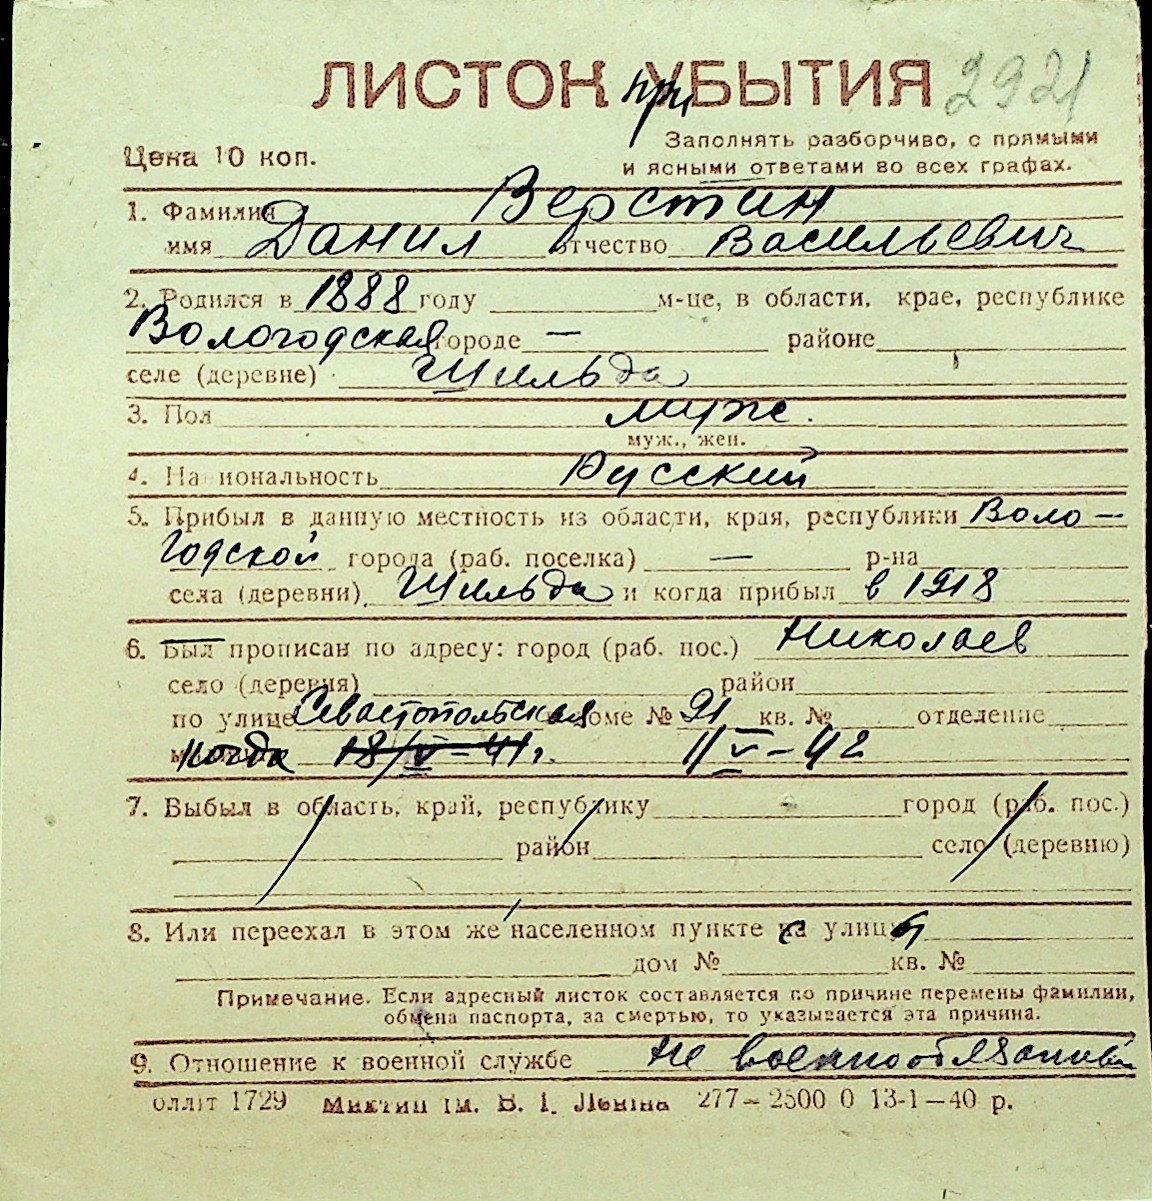 ЛИСТОК при УБЫТИЯ 2921
Цена 10 коп.
Заполнять разборчиво, с прямыми
и ясными ответами во всех графах.
1. Фамилия Верстин
имя Данил отчество Васильевич
2. Родился в 1888 году м-це, в области, крае, республике
Вологодская городе — районе
селе (деревне) Шильда
3. Пол муж.
муж., жен.
4. Национальность Русский
5. Прибыл в данную местность из области, края, республики Воло-
годской города (раб. поселка) — р-на
села (деревни) Шильда и когда прибыл в 1918
6. Был прописан по адресу: город (раб. пос.) Николаев
село (деревня) район
по улице Севастопольская доме № 21 кв. № отделение
когда 18/V-41г. 1/V-42
7. Выбыл в область, край, республику город (раб. пос.)
район село (деревню)
8. Или переехал в этом же населенном пункте с улицы
дом № кв. №
Примечание. Если адресный листок составляется по причине перемены фамилии,
обмена паспорта, за смертью, то указывается эта причина.
9. Отношение к военной службе Не военнообязанный
оллiт 1729 iм. В. I. Ленiна 277—2500 0 13-1—40 р.